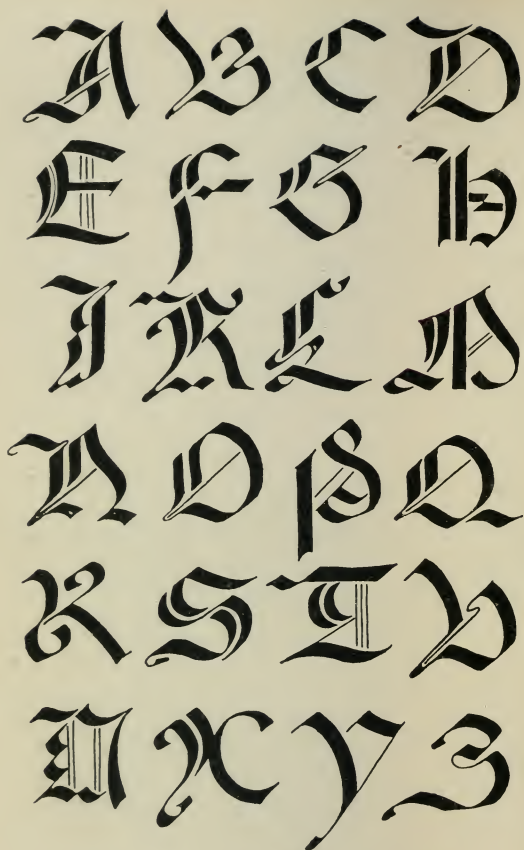 A B C D
E F G H
I K L M
N O P Q
R S T V
W X Y Z